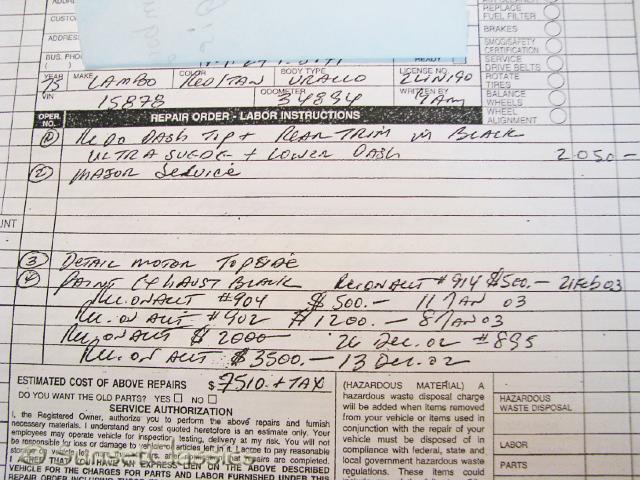 ADDRESS
CUSTO
ADDRE
BUS. PHO
READY
YEAR MAKE COLOR BODY TYPE LICENSE NO
75 LAMBO RED/TAN URACCO 2LIN190
VIN ODOMETER WRITTEN BY
15878 34894
OPER. NO. REPAIR ORDER - LABOR INSTRUCTIONS
REDO DASH TOP + REAR TRIM IN BLACK
ULTRA SUEDE + LOWER DASH 2050-
② MAJOR SERVICE
③ DETAIL MOTOR TOPSIDE
④ PAINT EXHAUST BLACK REC.ON ACCT #914 $500.- 21 FEB 03
REC.ON ACCT #904 $500.- 11 JAN 03
REC. ON ACCT #902 $1200.- 8 JAN 03
REC. ON ACCT $2000- 26 DEC. 02 #895
REC. ON ACCT $3500.- 13 DEC. 02
ESTIMATED COST OF ABOVE REPAIRS $ 7510. + TAX
DO YOU WANT THE OLD PARTS? YES NO
SERVICE AUTHORIZATION
I, the Registered Owner, authorize you to perform the above repairs and furnish
necessary materials. I understand any cost quoted heretofore is an estimate only. Your
employees may operate vehicle for inspection, testing, delivery at my risk. You will not
be responsible for loss or damage to vehicle or articles left in it. I agree to pay reasonable
VEHICLE FOR THE CHARGES FOR PARTS AND LABOR FURNISHED UNDER THIS
(HAZARDOUS MATERIAL) A
hazardous waste disposal charge
will be added when items removed
from your vehicle or items used in
conjunction with the repair of
your vehicle must be disposed of in
compliance with federal, state and
local government hazardous waste
regulations. These items could
HAZARDOUS
WASTE DISPOSAL
LABOR
PARTS
REPLACE
FUEL FILTER
BRAKES
SMOG/SAFETY
CERTIFICATION
SERVICE
DRIVE BELTS
ROTATE
TIRES
BALANCE
WHEELS
WHEEL
ALIGNMENT
UNT